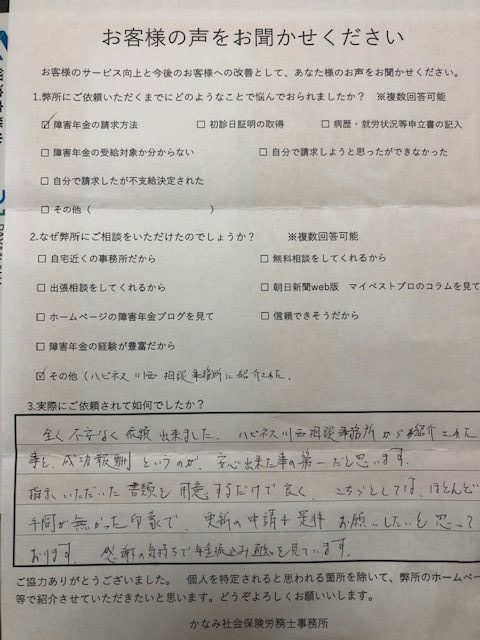 お客様の声をお聞かせください
お客様のサービス向上と今後のお客様への改善として、あなた様のお声をお聞かせください。
1.弊所にご依頼いただくまでにどのようなことで悩んでおられましたか? ※複数回答可能
☑ 障害年金の請求方法 □ 初診日証明の取得 □ 病歴・就労状況等申立書の記入
□ 障害年金の受給対象か分からない □ 自分で請求しようと思ったができなかった
□ 自分で請求したが不支給決定された
□ その他( )
2.なぜ弊所にご相談をいただけたのでしょうか? ※複数回答可能
□ 自宅近くの事務所だから □ 無料相談をしてくれるから
□ 出張相談をしてくれるから □ 朝日新聞web版 マイベストプロのコラムを見て
□ ホームページの障害年金ブログを見て □ 信頼できそうだから
□ 障害年金の経験が豊富だから
☑ その他(ハピネス川西相談事務所に紹介された。
3.実際にご依頼されて如何でしたか?
全く不安なく依頼出来ました。ハピネス川西相談事務所から紹介された
事と、成功報酬というのが、安心出来た事の第一だと思います。
指示いただいた書類を用意するだけで良く、こちらとしては、ほとんど
手間が無かった印象で、更新の申請も是非お願いしたいと思って
おります。感謝の気持ちで年金振込み通知を見ています。
ご協力ありがとうございました。 個人を特定されると思われる箇所を除いて、弊所のホームペー
等で紹介させていただきたいと思います。どうぞよろしくお願いいします。
かなみ社会保険労務士事務所